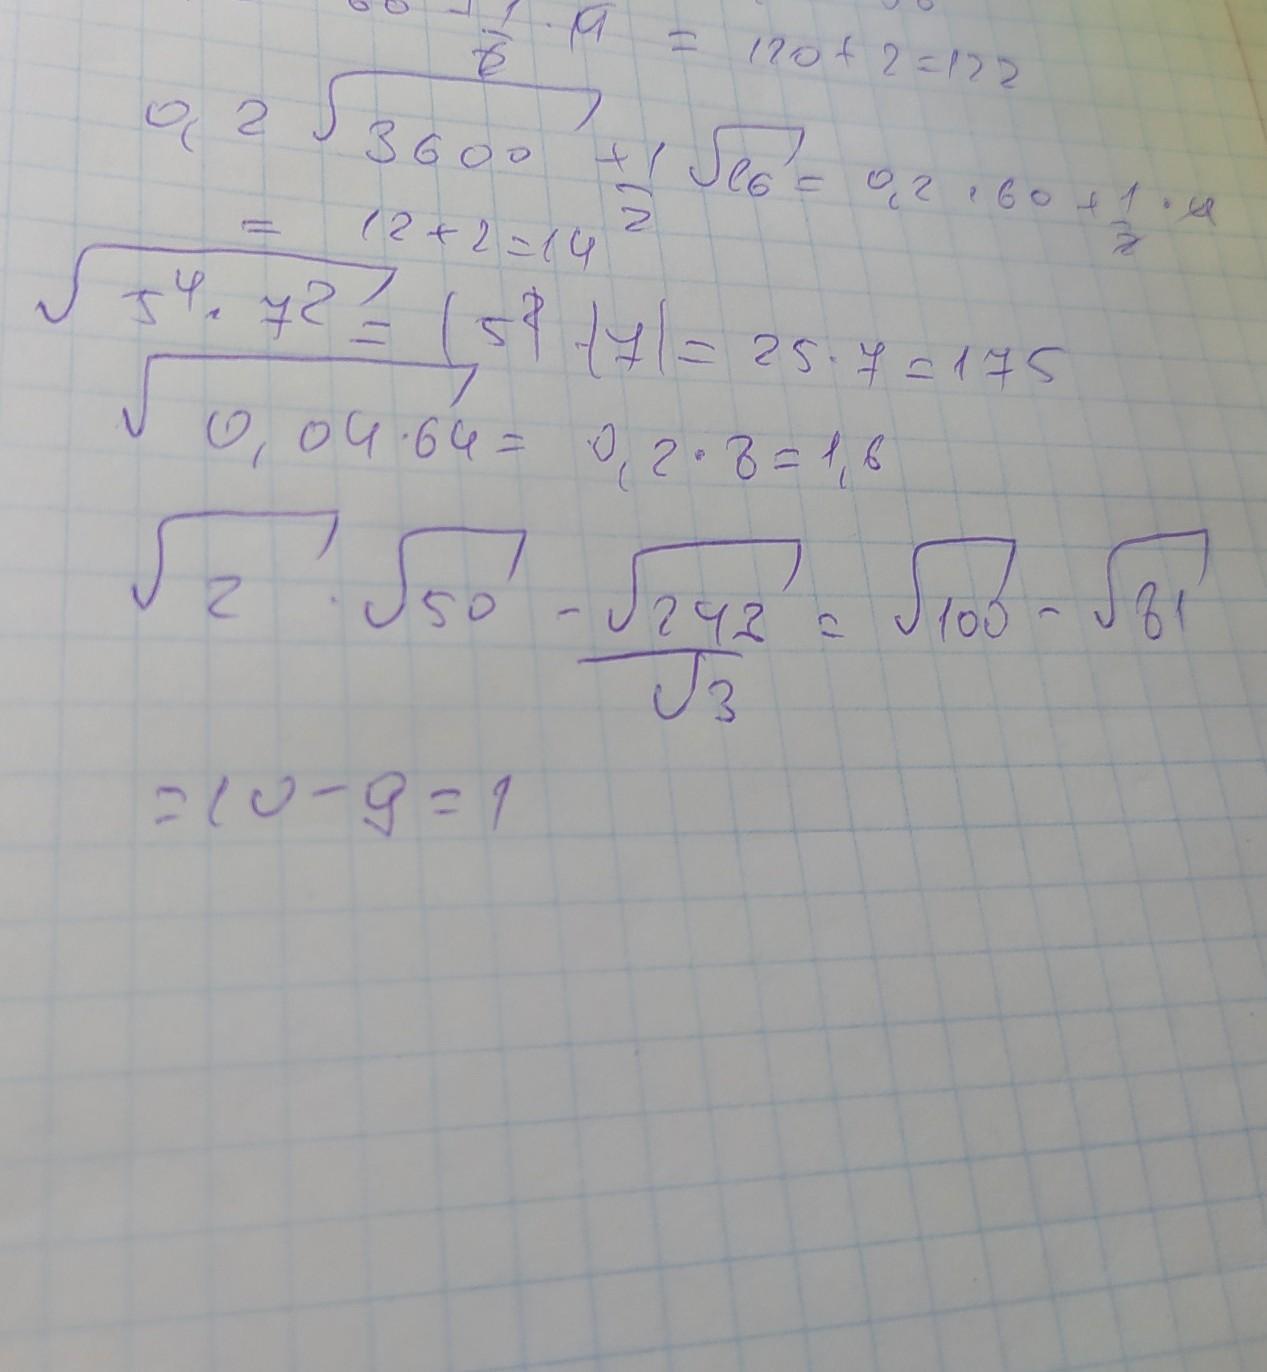 60 + 1/2 · 4 = 120 + 2 = 122
0,2 √3600 + 1/2 √16 = 0,2 · 60 + 1/2 · 4
= 12 + 2 = 14
√5⁴ · 7² = |5²| · |7| = 25 · 7 = 175
√0,04 · 64 = 0,2 · 8 = 1,6
√2 · √50 - √243/√3 = √100 - √81
= 10 - 9 = 1